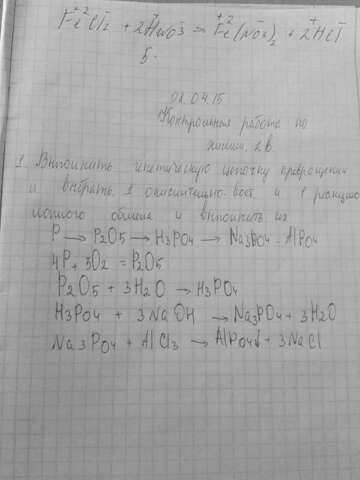 +2 - + - +2 - + -
FeCl2 + 2HNO3 = Fe(NO3)2 + 2HCl
5.
02.04.15
Контрольная работа по
химии. 2в.
1. Выполнить генетическую цепочку превращений
и выбрать 1 окислительно-вост. и 1 реакцию
ионного обмена и выполнить их
P → P2O5 → H3PO4 → Na3PO4 - AlPO4
4P + 5O2 = P2O5
P2O5 + 3H2O → H3PO4
H3PO4 + 3NaOH → Na3PO4 + 3H2O
Na3PO4 + AlCl3 → AlPO4↓ + 3NaCl